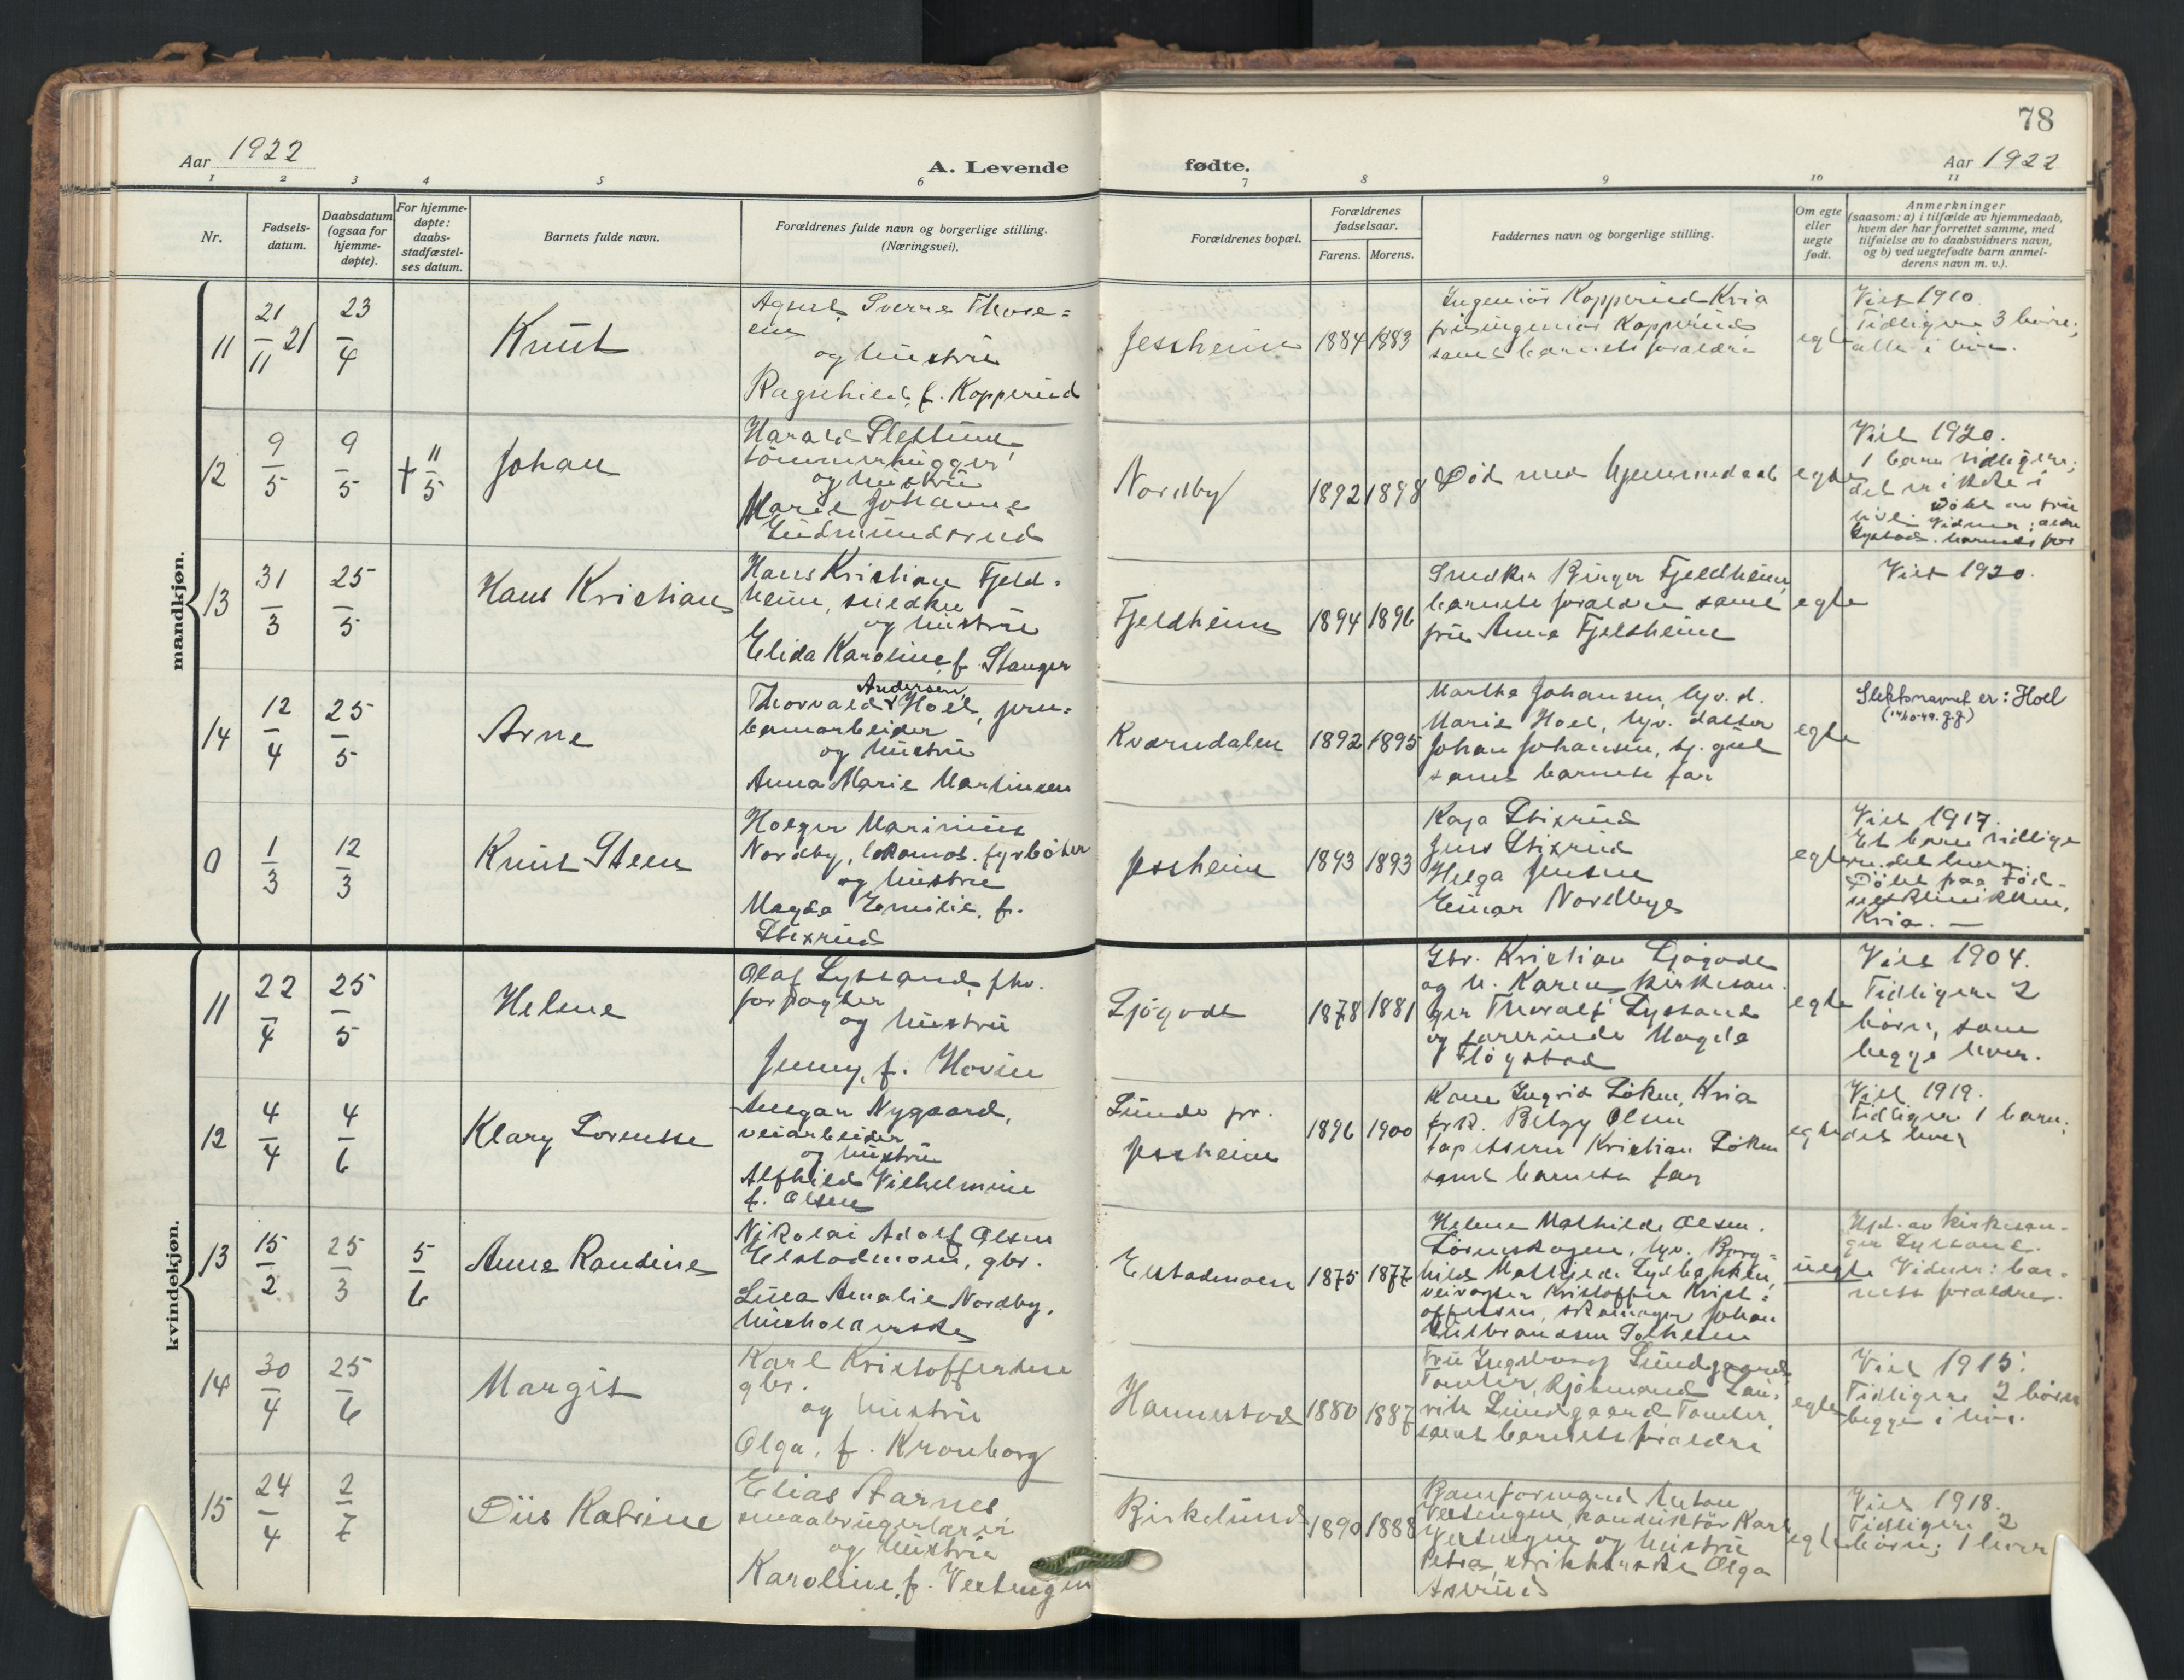 78
Aar 1922
A. Levende
fødte.
Aar 1922
1 2 3 4 5 6 7 8 9 10 11
Nr.
Fødsels-
datum.
Daabsdatum
(ogsaa for
hjemme-
døpte).
For hjemme-
døpte:
daabs-
stadfæstel-
ses datum.
Barnets fulde navn.
Forældrenes fulde navn og borgerlige stilling.
(Næringsvei).
Forældrenes bopæl.
Forældrenes
fødselsaar.
Farens. Morens.
Faddernes navn og borgerlige stilling.
Om egte
eller
uegte
født.
Anmerkninger
(saasom: a) i tilfælde av hjemmedaab,
hvem der har forrettet samme, med
tilføielse av to daabsvidners navn,
og b) ved uegtefødte barn anmel-
derens navn m. v.).
mandkjøn.
11
21/11 21
23/4
Knut
Sverre
og hustru
Ragnhild, f. Kopperud
Jessheim
1884 1883
Ingeniør Kopperud Kria
Kopperud
samt barnets forældre
egte
Viet 1910.
Tidligere 3 børn;
alle i live.
12
9/5
9/5
† 11/5
Johan
Harald
tømmerhugger
og hustru
Marie Johanne
Gudmundsrud
Nordby
1892 1898
Død med hjemmedaab
egte
Viet 1920.
1 barn tidligere;
det er ikke i
live.
Døbt av fru
Vidner:
barnets for
13
31/3
25/5
Hans Kristian
Hans Kristian Fjeld-
heim, snedker
og hustru
Elida Karoline, f. Stanger
Fjeldheim
1894 1896
Snedker Birger Fjeldheim
barnets forældre samt
fru Anna Fjeldheim
egte
Viet 1920.
14
12/4
25/5
Arne
Andersen
Thorvald Hoel, jern-
banearbeider
og hustru
Anna Marie Martinsen
Kværndalen
1892 1895
Martha Johansen, hjv. d.
Marie Hoel, hjv. datter
Johan Johansen, gut
samt barnets far
egte
Slektsnavnet er: Hoel
0
1/3
12/3
Knut Steen
Holger Marinius
Nordby, lokomot. fyrbøter
og hustru
Magda Emilie, f.
Stixrud
Jessheim
1893 1893
Kaja Stixrud
Jens Stixrud
Helga Jensen
Einar Nordbye
egte
Viet 1917.
Et barn tidlige-
re. det lever.
Døbt paa Fød-
selsklinikken,
Kria. —
kvindekjøn.
11
22/4
25/5
Helene
Olaf Lystad, fhv.
forpagter
og hustru
Jenny, f. Hovin
Ljøgodt
1878 1881
Gbr. Kristian Ljøgodt
og h. Karen, kirkesan-
ger Thoralf
og lærerinde Magda
Fløgstad
egte
Viet 1904.
Tidligere 2
børn, som
begge lever.
12
4/4
4/6
Klary Lovense
Nygaard,
veiarbeider
og hustru
Alfhild Vilhelmine
f. Olsen
Lunde pr.
Jessheim
1896 1900
Kone Ingrid Løken, Kria
frk. Betzy Olsen
tapetserer Kristian Løken
samt barnets far
egte
Viet 1919.
Tidligere 1 barn;
det lever
13
15/2
25/3
5/6
Anne Randine
Nikolai Adolf Olsen
Elstadmoen, gbr.
Lina Amalie Nordby,
husholderske
Elstadmoen
1875 1877
Helene Mathilde Olsen.
Lørenskogen, hjv. Borg-
hild Mathilde
veivogter Kristoffer Krist-
offersen, skomager Johan
Gulbrandsen Solheim
uegte
Hjd. av kirkesan-
ger
Vidner: bar-
nets forældre.
14
30/4
25/6
Margit
Karl Kristoffersen
gbr.
og hustru
Olga, f. Kronborg
Hannestad
1880 1887
Fru Ingeborg Lundgaard
Tomter, kjøbmand Lau-
rits Lundgaard Tomter,
samt barnets forældre
egte
Viet 1915.
Tidligere 2 børn
begge i live.
15
24/4
2/7
Diis Katrine
Elias Aarnes
smaabruger
og hustru
Karoline, f. Vestengen
Birkelund
1890 1888
Baneformand Anton
Vestengen, konduktør Karl
Vestengen og hustru
Petra, strikkerske Olga
Asbrud
egte
Viet 1918.
Tidligere 2
børn; 1 lever